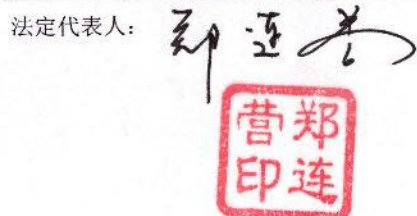 法定代表人： 郑连营
郑连营印